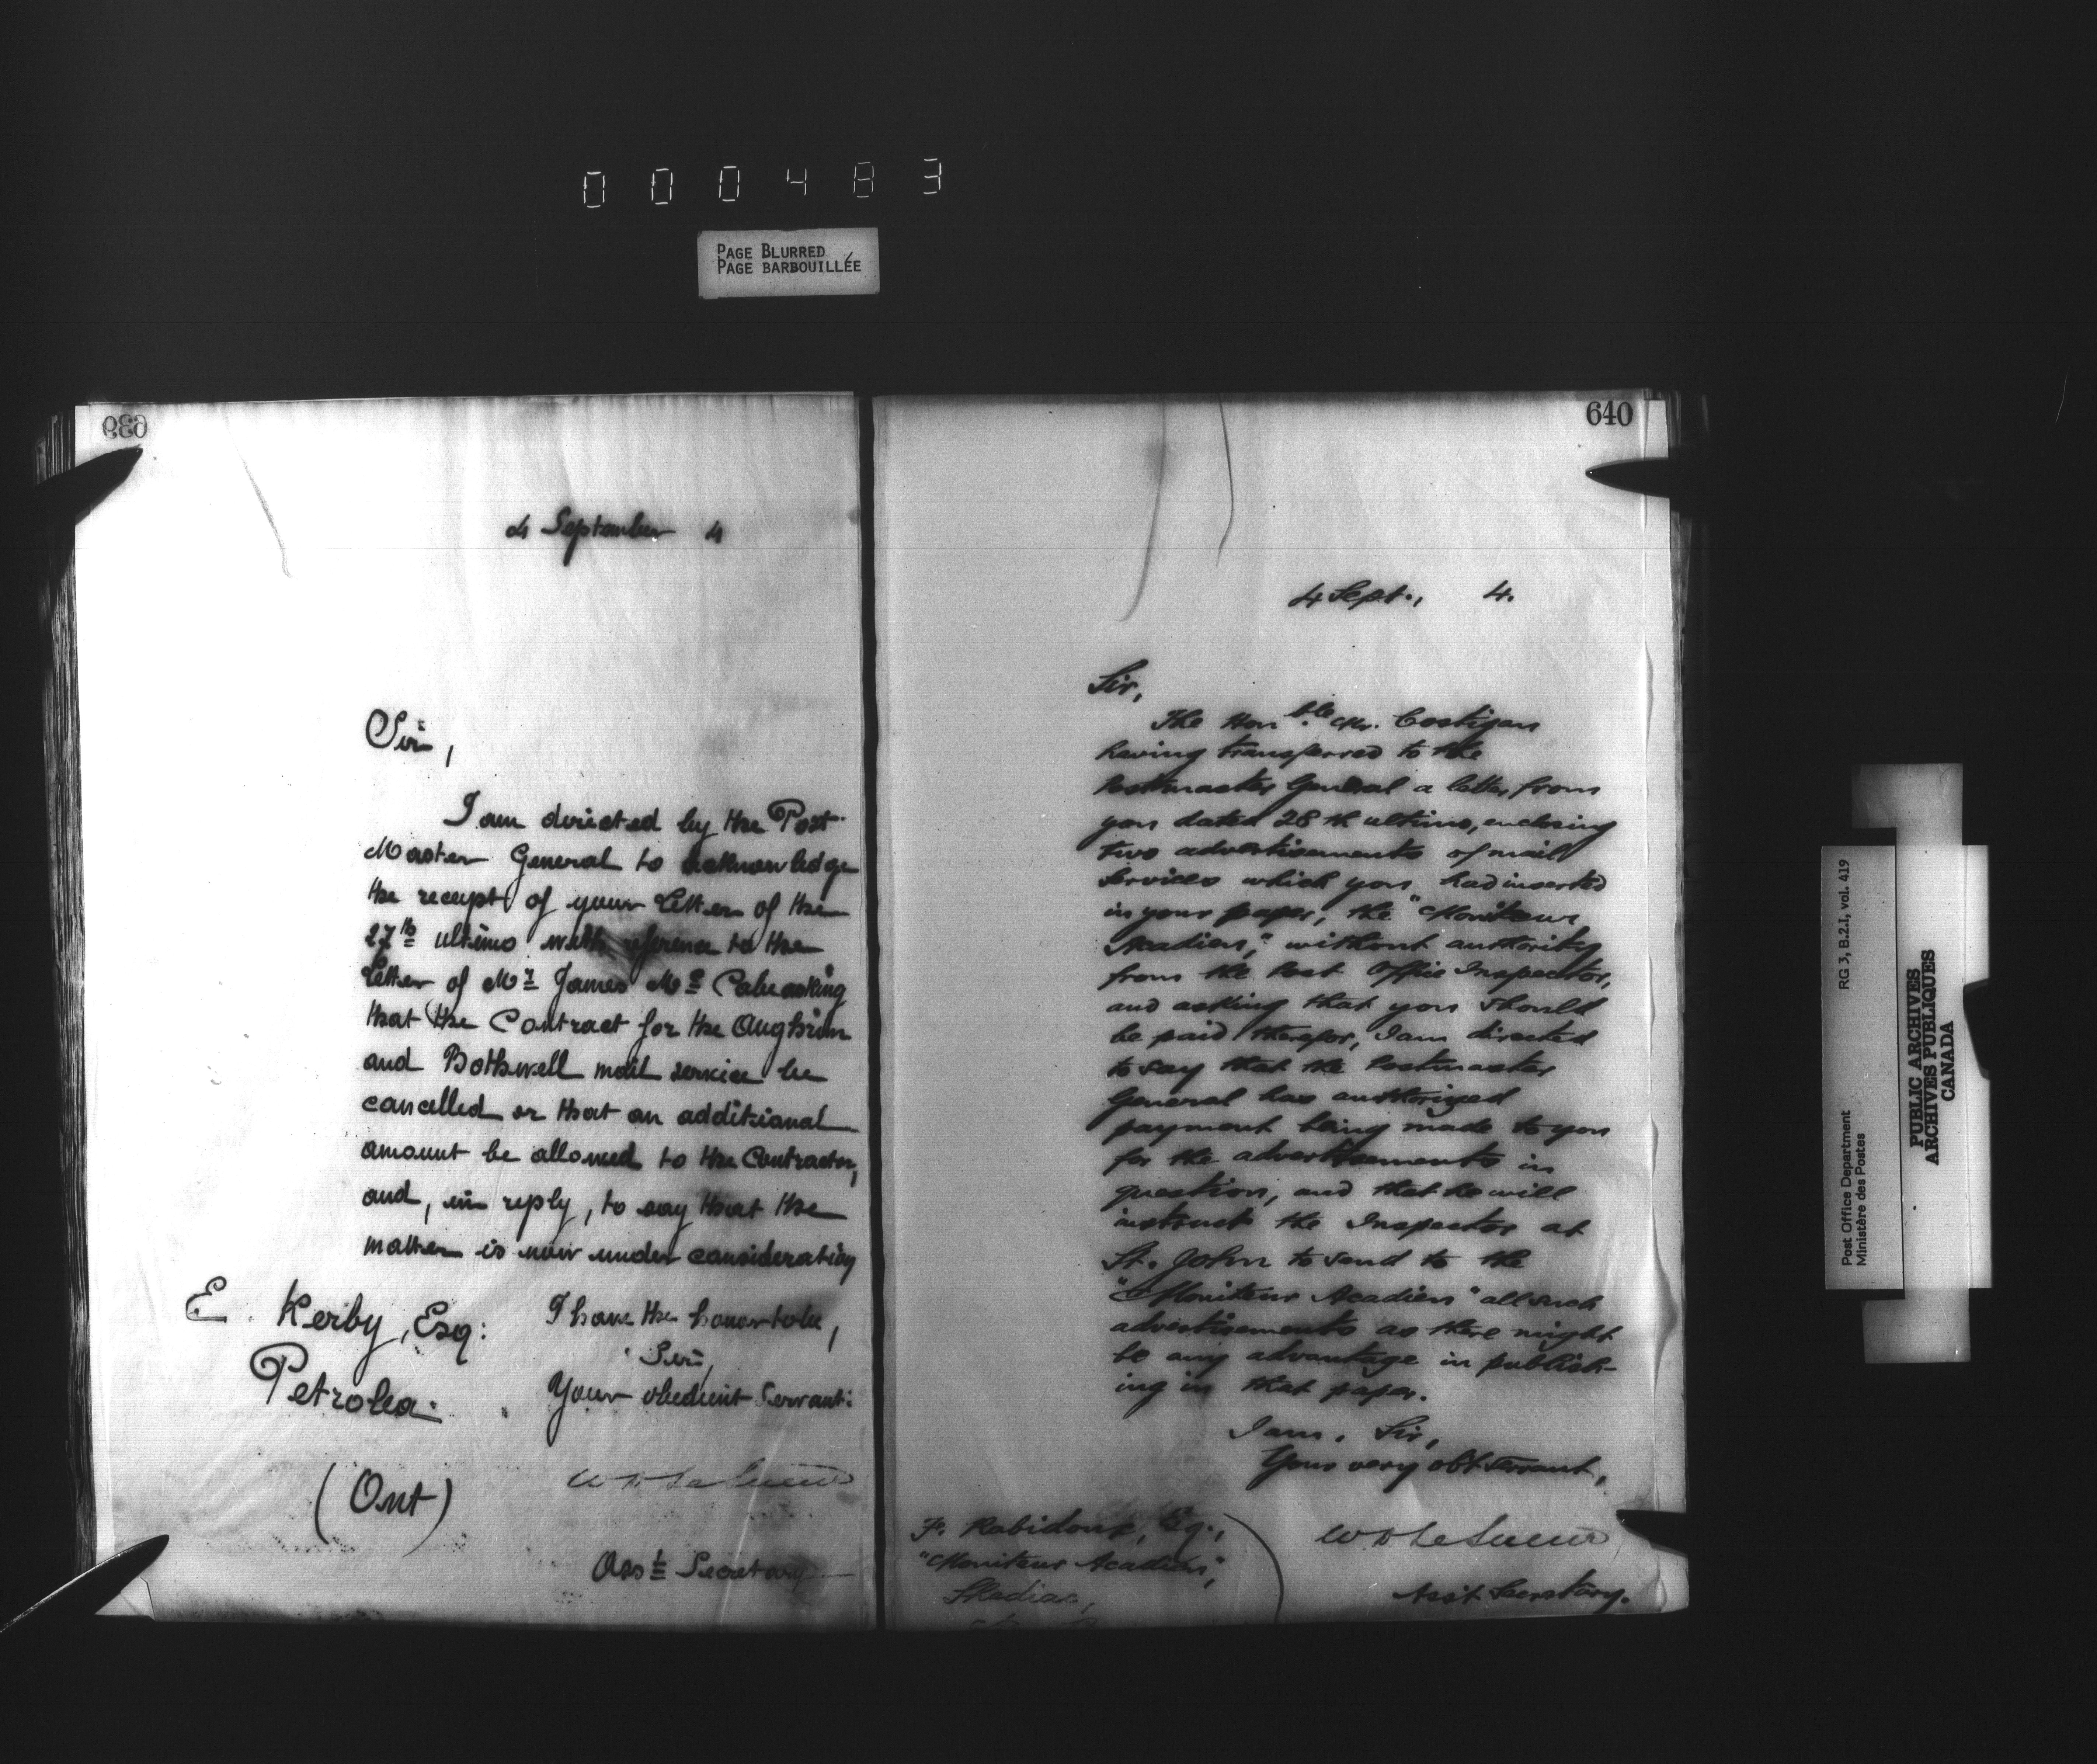 000483
PAGE BLURRED
PAGE BARBOUILLÉE
639
4 September 4
Sir,
I am directed by the Post
Master General to acknowledge
the receipt of your Letter of the
27th ultimo with reference to the
Letter of Mr James Mc Cabe asking
that the Contract for the Aughrim
and Bothwell mail service be
cancelled or that an additional
amount be allowed to the Contractor,
and, in reply, to say that the
matter is now under consideration
I have the honor to be,
Sir,
Your obedient Servant:
W D LeSueur
Asst Secretary
E. Kerby, Esq:
Petrolea.
(Ont)
640
4 Sept., 4.
Sir,
The Honble. Mr. Costigan
having transferred to the
Postmaster General a letter from
you dated 28th ultimo, enclosing
two advertisements of mail
services which you had inserted
in your paper, the "Moniteur
Acadien," without authority
from the Post Office Inspector,
and asking that you should
be paid therefor, I am directed
to say that the Postmaster
General has authorized
payment being made to you
for the advertisements in
question, and that he will
instruct the Inspector at
St. John to send to the
"Moniteur Acadien" all such
advertisements as there might
be any advantage in publish-
ing in that paper.
I am, Sir,
Your very obt servant,
W D LeSueur
Asst Secretary.
F. Robidoux, Esq.,
"Moniteur Acadien",
Shediac,
Post Office Department
Ministère des Postes
RG 3, B.2.I, vol. 419
PUBLIC ARCHIVES
ARCHIVES PUBLIQUES
CANADA